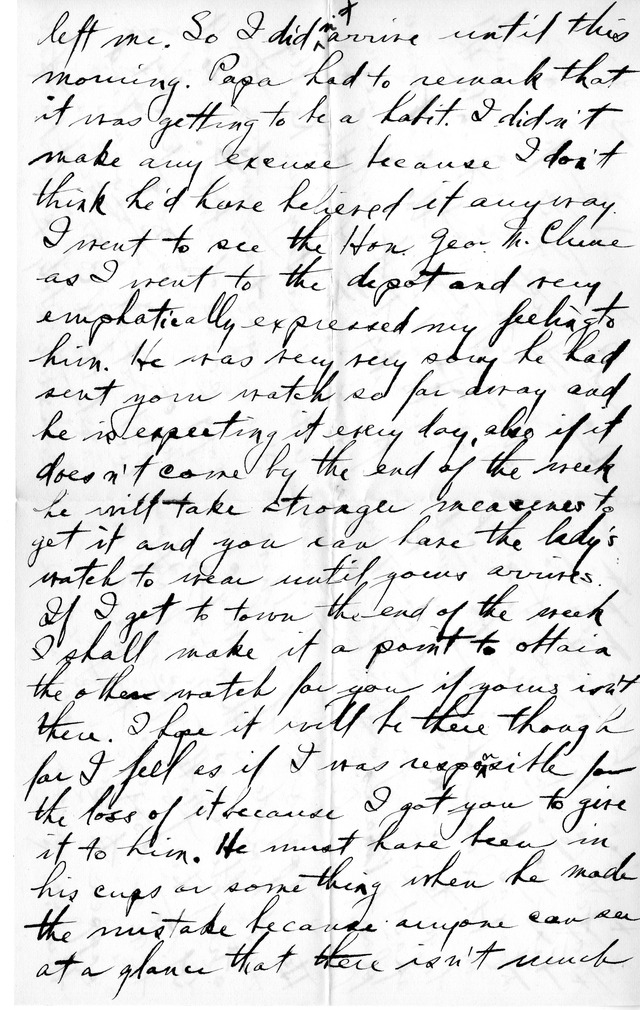 left me. So I didn't arrive until this
morning. Papa had to remark that
it was getting to be a habit. I didn't
make any excuse because I don't
think he'd have believed it anyway.
I went to see the Hon. Geo. M. Clune
as I went to the depot and very
emphatically expressed my feeling to
him. He was very very sorry he had
sent your watch so far away and
he is expecting it every day, also if it
doesn't come by the end of the week
he will take stronger measures to
get it and you can have the lady's
watch to wear until yours arrives.
If I get to town the end of the week
I shall make it a point to obtain
the other watch for you if yours isn't
there. I hope it will be there though
for I feel as if I was responsible for
the loss of it because I got you to give
it to him. He must have been in
his cups or something when he made
the mistake because anyone can see
at a glance that there isn't much